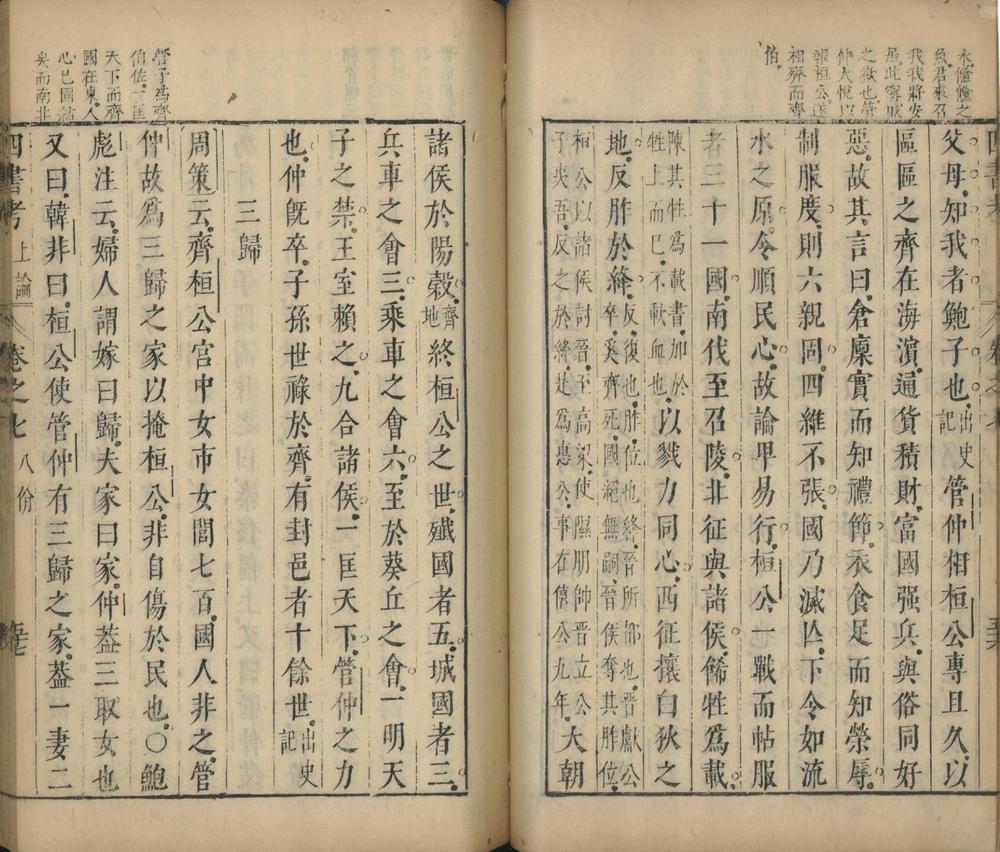 水儋儋之
魚君來召
我我將安
居此甯戚
之欲也管
仲大悅以
報桓公遂
相齊而齊
伯
父母知我者鮑子也出史記管仲相桓公專且久以
區區之齊在海濱通貨積財富國强兵與俗同好
惡故其言曰倉廩實而知禮節衣食足而知榮辱
制服度則六親固四維不張國乃滅亾下令如流
水之原令順民心故論甲易行桓公一戰而帖服
者三十一國南伐至召陵非征與諸侯餙牲爲載
陳其牲爲載書加於
牲上而巳不歃血也以戮力同心西征攘白狄之
地反胙於絳反復也胙位也絳晉所都也晉獻公
卒奚齊死國絕無嗣晉侯奪其胙位
桓公以諸侯討晉至高梁使隰朋帥晉立公
子夷吾反之於絳是爲惠公事在僖公九年大朝
管子爲齊
伯佐一匡
天下而齊
國在東人
心巳固結
矣而南北
諸侯於陽穀齊地終桓公之世殲國者五城國者三
兵車之會三乘車之會六至於葵丘之會一明天
子之禁王室賴之九合諸侯一匡天下管仲之力
也仲旣卒子孫世祿於齊有封邑者十餘世出史記
三歸
周策云齊桓公宮中女市女閭七百國人非之管
仲故爲三歸之家以掩桓公非自傷於民也〇鮑
彪注云婦人謂嫁曰歸夫家曰家仲葢三取女也
又曰韓非曰桓公使管仲有三歸之家葢一妻二
四書考 上論 卷之七 八佾